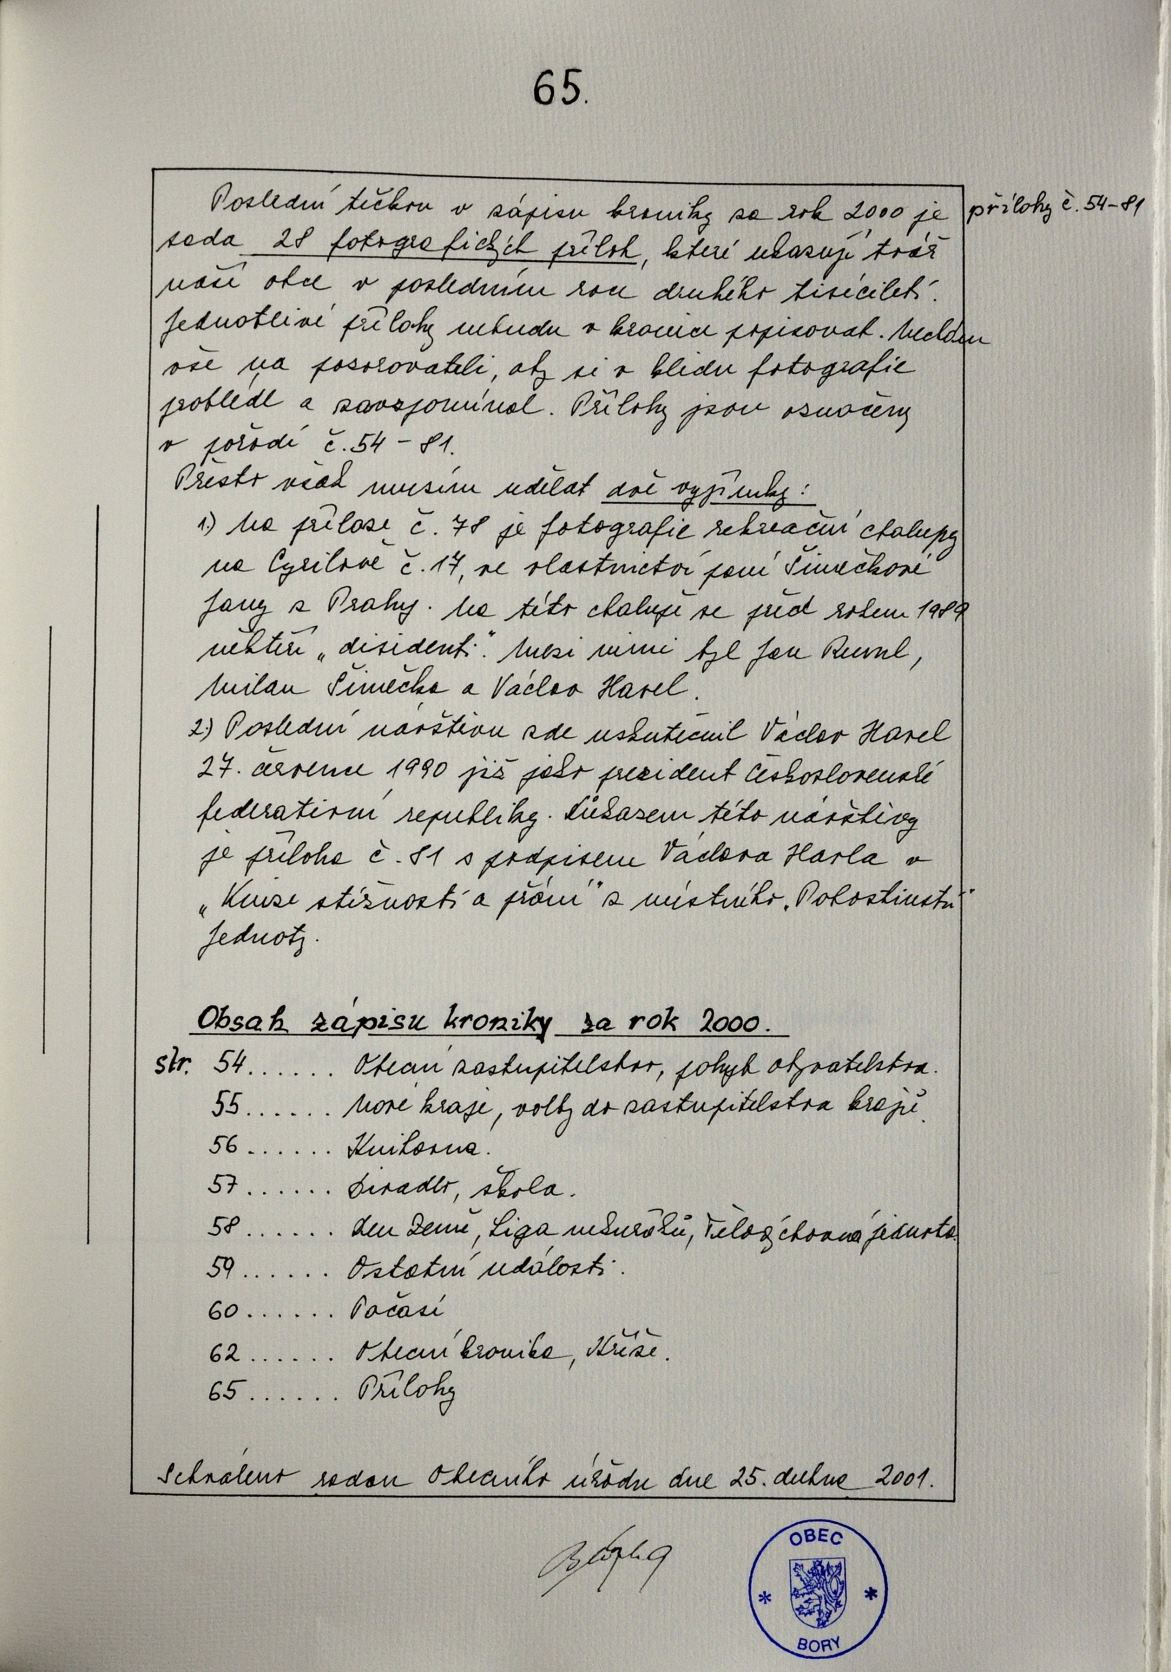 65.
Poslední tečkou v zápisu kroniky za rok 2000 je
přílohy č. 54-81
sada 28 fotografických příloh, které ukazují tvář
naší obce v posledním roce druhého tisíciletí.
Jednotlivé přílohy nebudu v kronice popisovat. Nechám
vše na pozorovateli, aby si v klidu fotografie
prohlédl a zavzpomínal. Přílohy jsou označeny
v pořadí č. 54 - 81.
Přesto však musím udělat dvě vyjímky:
1) Na příloze č. 78 je fotografie rekreační chalupy
na Cyrilově č. 17, ve vlastnictví paní Šimečkové
Jany z Prahy. Na této chalupě se před rokem 1989
někteří „disidenti". Mezi nimi byl Jan Ruml,
Milan Šimečka a Václav Havel.
2.) Poslední návštěvu zde uskutečnil Václav Havel
27. července 1990 již jako prezident Československé
federativní republiky. Důkazem této návštěvy
je příloha č. 81 s podpisem Václava Havla v
„Knize stížností a přání" z místního „Pohostinství"
Jednoty.
Obsah zápisu kroniky za rok 2000.
str. 54...... Obecní zastupitelstvo, pohyb obyvatelstva.
55...... Nové kraje, volby do zastupitelstva krajů.
56...... Knihovna.
57...... Divadlo, škola.
58...... Den Země, Liga nekuřáků, Tělovýchovná jednota.
59...... Ostatní události.
60...... Počasí
62...... Obecní kronika, Kříže.
65...... Přílohy
Schváleno radou Obecního úřadu dne 25. dubna 2001.
OBEC
* *
BORY